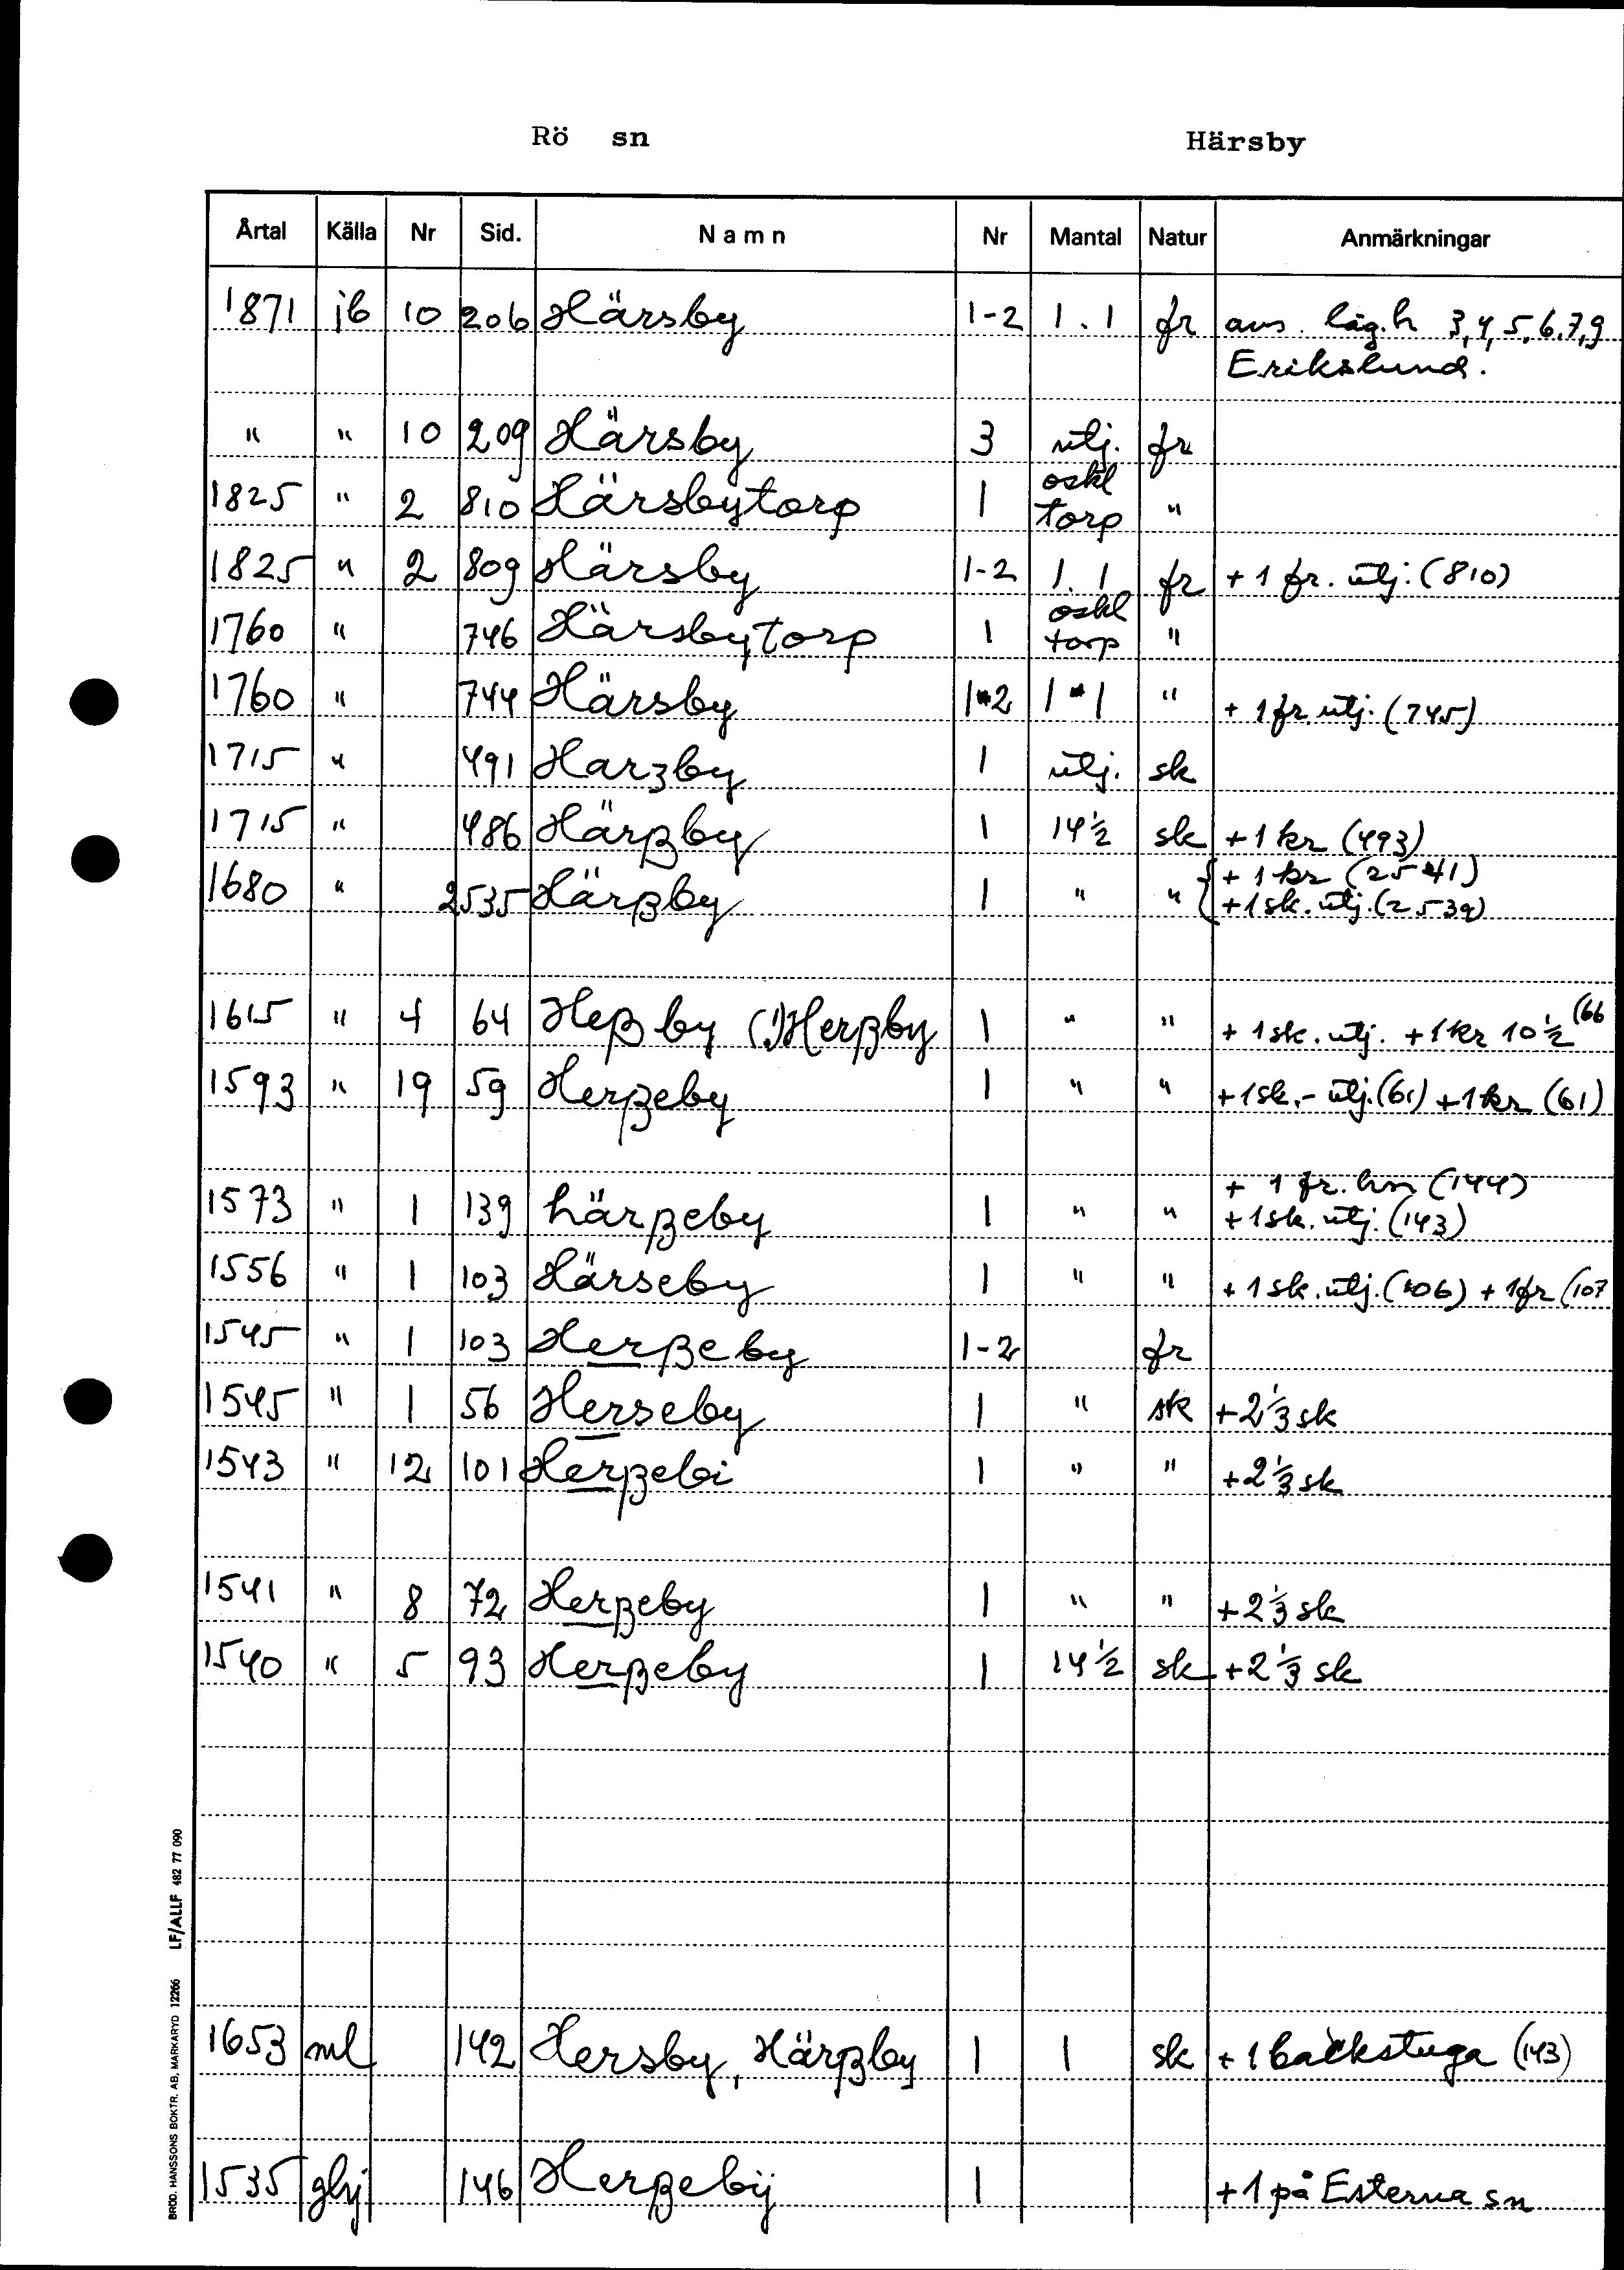 Rö sn Härsby
Årtal Källa Nr Sid. Namn Nr Mantal Natur Anmärkningar
1871 jb 10 206 Härsby 1-2 1.1 fr avs. läg.h 3,4,5,6,7,9
Erikslund.
" " 10 209 Härsby 3 utj. fr
oskl
1825 " 2 810 Härsbytorp 1 torp "
1825 " 2 809 Härsby 1-2 1.1 fr + 1 fr. utj. (810)
oskl
1760 " 746 Härsbytorp 1 torp "
1760 " 744 Härsby 1-2 1-1 " + 1 fr. utj. (745)
1715 " 491 Harzby 1 utj. sk
1715 " 486 Härßby 1 14½ sk + 1 kr (493)
+ 1 kr (2541)
1680 " 2535 Härßby 1 " " + 1 sk. utj. (2539)
1615 " 4 64 Heßby (!) Herßby 1 " " + 1 sk. utj. + 1 kr 10½ (66
1593 " 19 59 Herßeby 1 " " + 1 sk. - utj. (61) + 1 kr (61)
+ 1 fr. hm (144)
1573 " 1 139 härßeby 1 " " + 1 sk. utj. (143)
1556 " 1 103 Härseby 1 " " + 1 sk. utj. (106) + 1 fr (107
1545 " 1 103 Herßeby 1-2 fr
1545 " 1 56 Herseby 1 " sk + 2⅓ sk
1543 " 12 101 Herßebi 1 " " + 2⅓ sk
1541 " 8 72 Herßeby 1 " " + 2⅓ sk
1540 " 5 93 Herßeby 1 14½ sk + 2⅓ sk
1653 ml 142 Hersby, Härßby 1 1 sk + 1 backstuga (143)
1535 ghj 146 Herßebÿ 1 + 1 på Esterna sn
BRÖD. HANSSONS BOKTR. AB, MARKARYD 12266 LF/ALLF 482 77 090